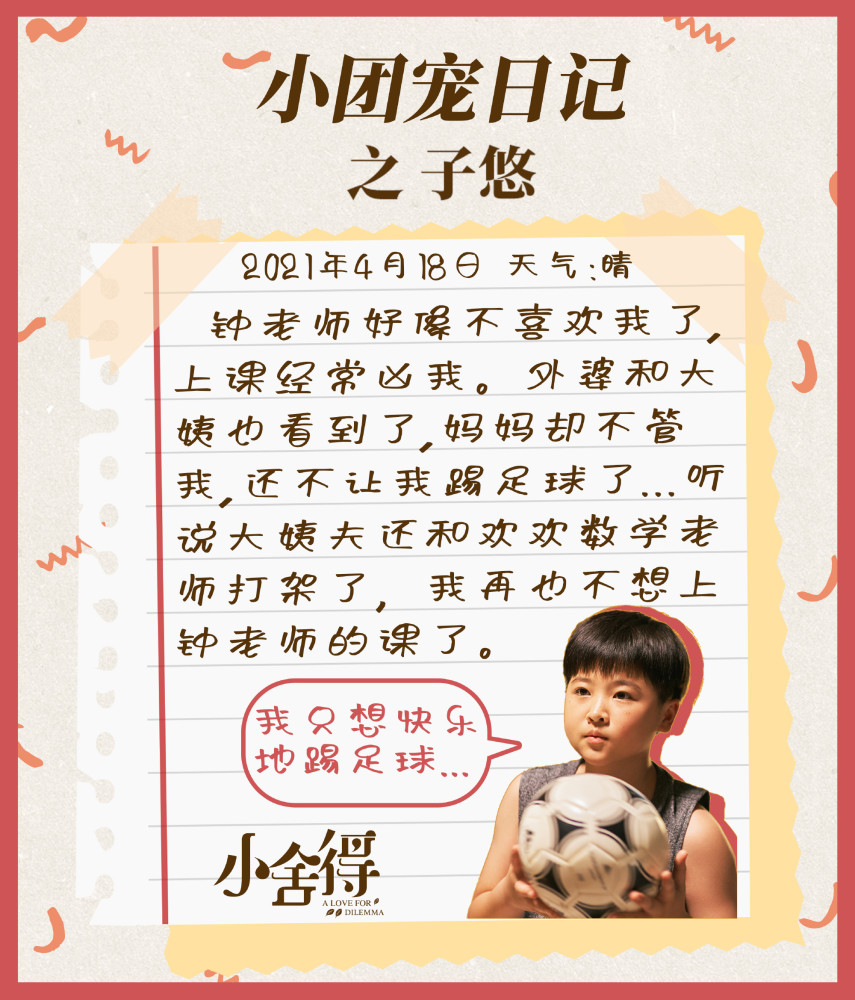 小团宠日记
之子悠
2021年4月18日 天气:晴
钟老师好像不喜欢我了,
上课经常凶我。外婆和大
姨也看到了,妈妈却不管
我,还不让我踢足球了...听
说大姨夫还和欢欢数学老
师打架了,我再也不想上
钟老师的课了。
我只想快乐
地踢足球...
小舍得
A LOVE FOR
DILEMMA